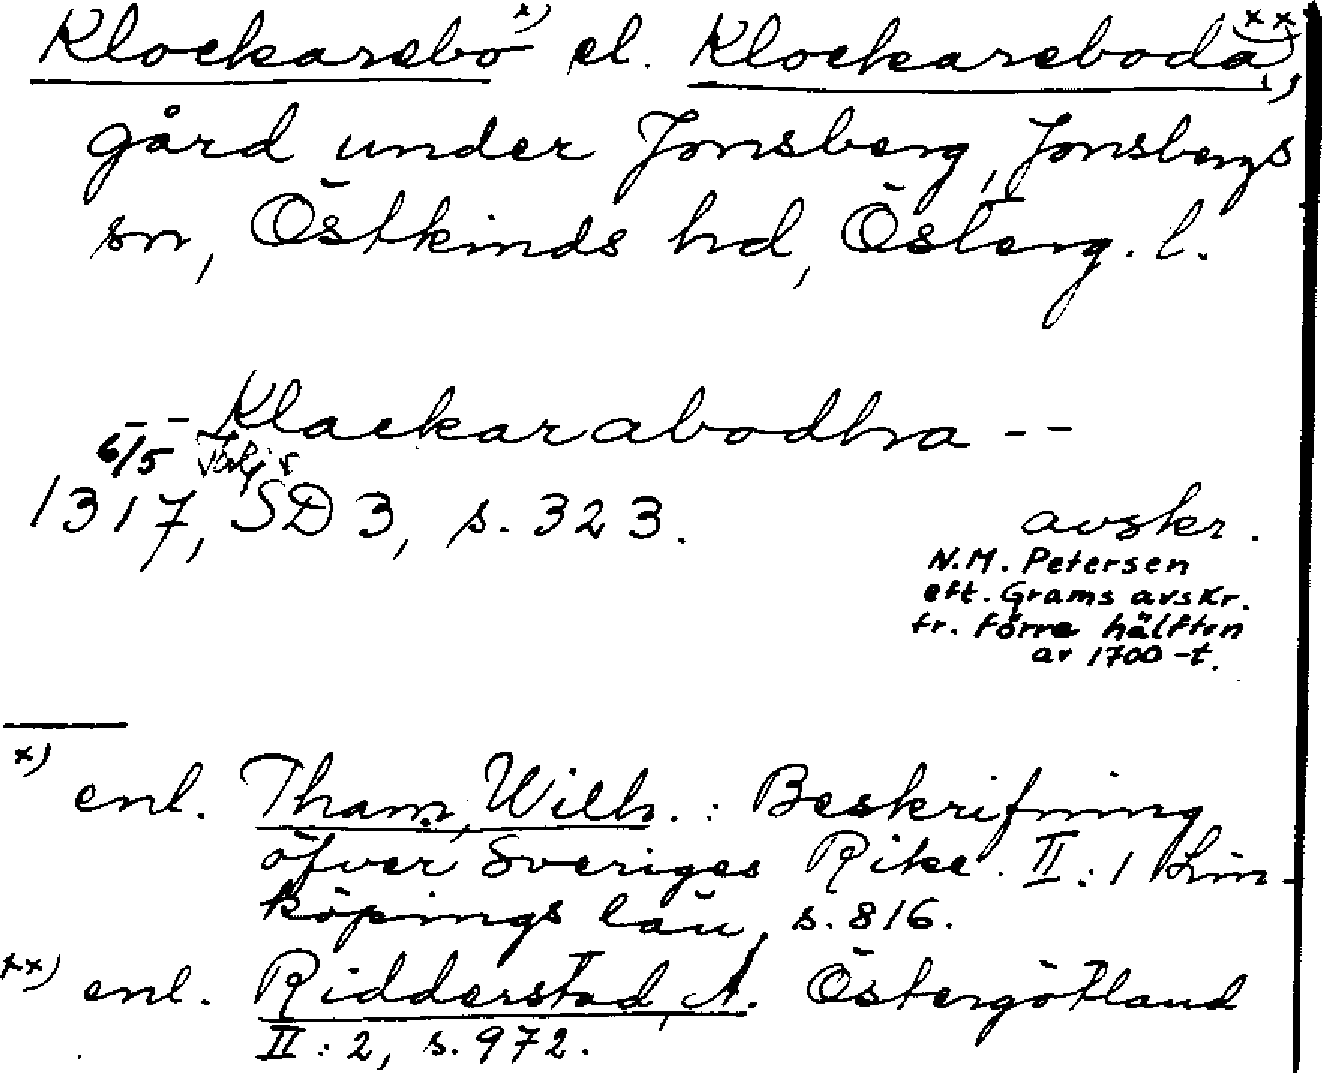 Klockarebo x) el. Klockareboda xx),
gård under Jonsberg, Jonsbergs
sn, Östkinds hd, Österg. l.
-- Klackarabodhra --
6/5
1317, SD 3, s. 323.
avskr.
N.M. Petersen
eft. Grams avskr.
fr. förra hälften
av 1700-t.
x) enl. Tham, Wilh.: Beskrifning
öfver Sveriges Rike. II:1 Lin-
köpings län, s. 816.
xx) enl. Ridderstad, A. Östergötland
II:2, s. 972.